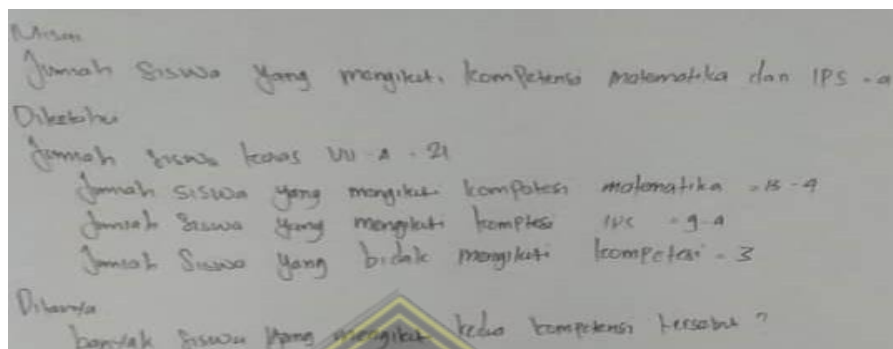 Misan
Jumlah Siswa yang mengikuti kompetensi matematika dan IPS = a
Diketahui
Jumlah siswa kelas VII - A = 21
Jumlah siswa yang mengikuti kompetesi matematika = 15 - a
Jumlah Siswa yang mengikuti komptesi IPS = 9 - a
Jumlah Siswa yang tidak mengikuti kompetesi = 3
Ditanya
banyak siswa yang mengikuti kedua kompetensi tersebut ?